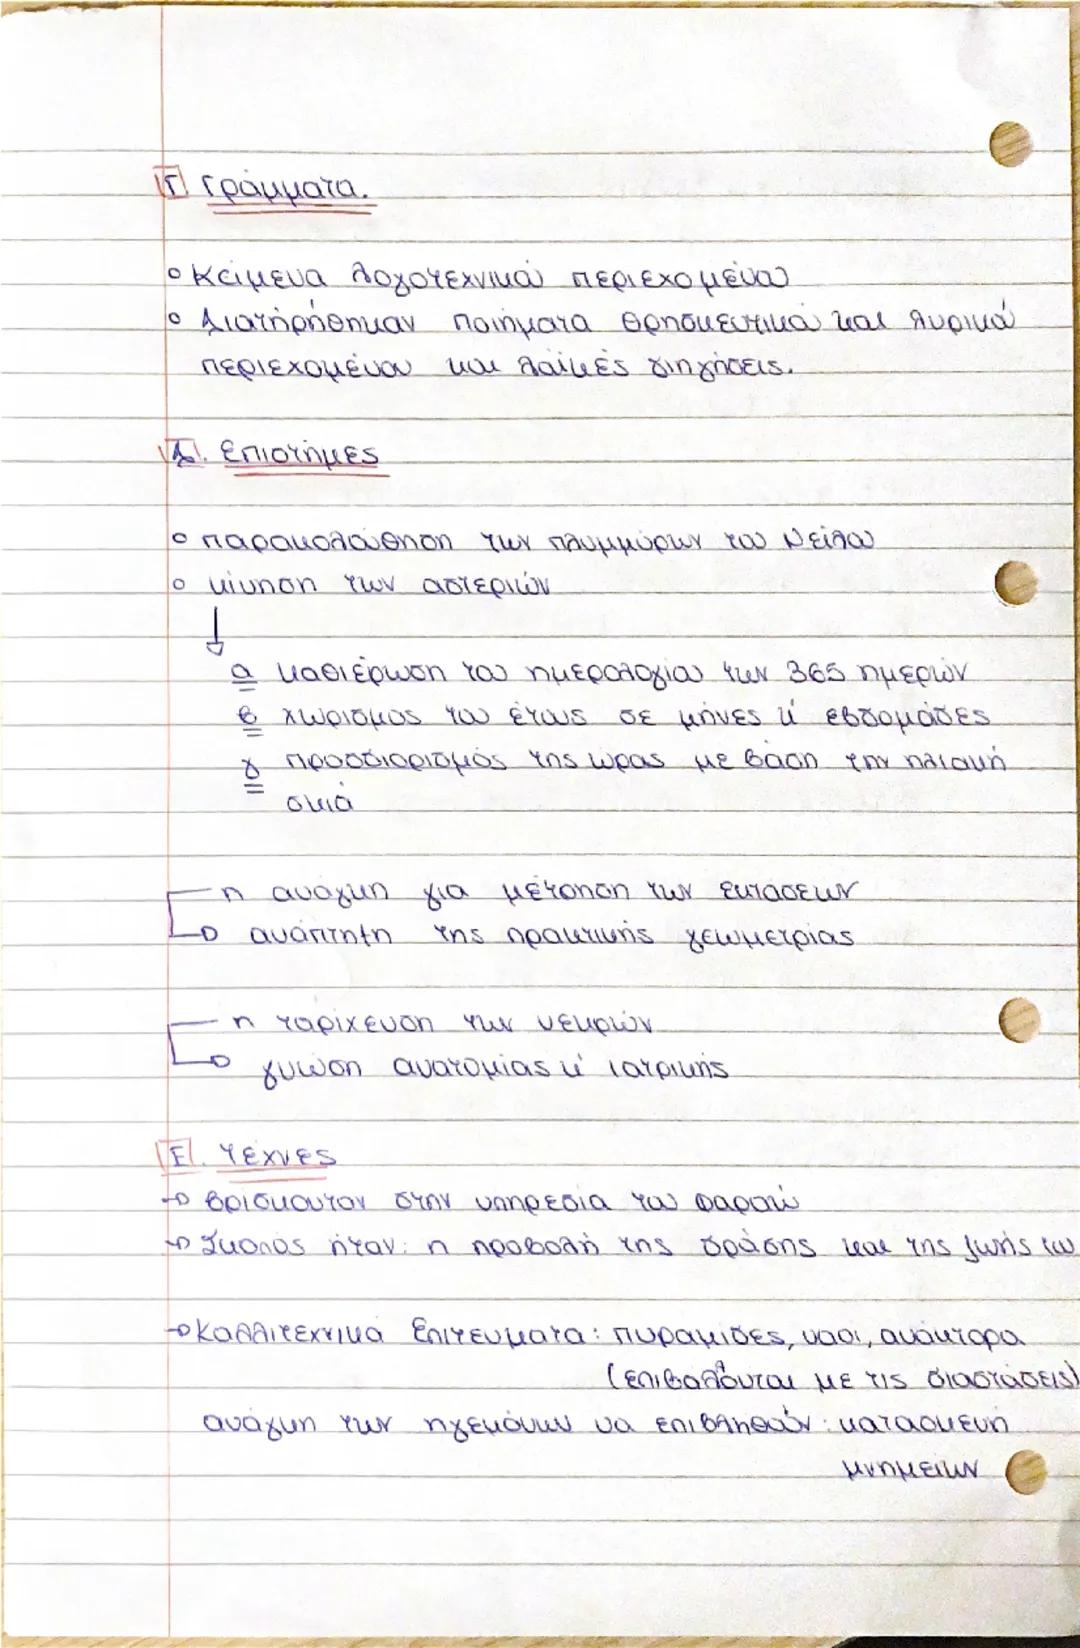 Γ. Γράμματα.
ο Κείμενα λογοτεχνικού περιεχομένου
ο Διατηρήθηκαν ποιήματα θρησκευτικού και λυρικού
περιεχομένου και λαϊκές διηγήσεις.
Δ. Επιστήμες
ο παρακολούθηση των πλημμύρων του Νείλου
ο κίνηση των αστεριών
↓
α καθιέρωση του ημερολογίου των 365 ημερών
β χωρισμός του έτους σε μήνες κ' εβδομάδες
γ προσδιορισμός της ώρας με βάση την ηλιακή
σκιά
η ανάγκη για μέτρηση των εκτάσεων
→ ανάπτηξη της πρακτικής γεωμετρίας
η ταρίχευση των νεκρών
→ γνώση ανατομίας κ' ιατρικής
Ε. Τέχνες
→ Βρίσκονταν στην υπηρεσία του Φαραώ
→ Σκοπός ήταν: η προβολή της δράσης και της ζωής του
→ Καλλιτεχνικά Επιτεύματα: πυραμίδες, ναοί, ανάκτορα
(επιβάλλονται με τις διαστάσεις)
ανάγκη των ηγεμόνων να επιβληθούν: κατασκευή
μνημείων